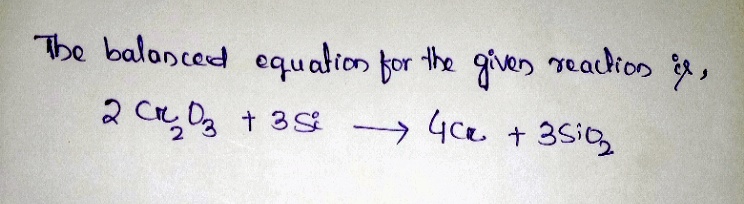 The balanced equation for the given reaction is,
2 Cr₂O₃ + 3Si → 4Cr + 3SiO₂